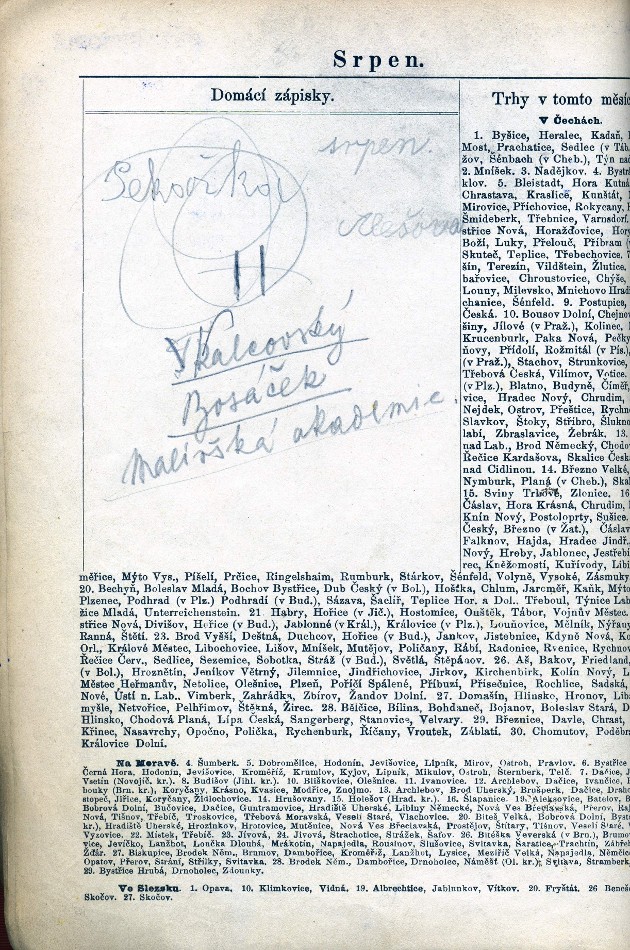 Srpen.
Domácí zápisky.
srpen.
II
Skalcovský
Bosáček
Malířská akademie.
Trhy v tomto měsíc
V Čechách.
1. Byšice, Heralec, Kadaň,
Most, Prachatice, Sedlec (v Táb.
žov, Šénbach (v Cheb.), Týn na
2. Mníšek. 3. Nadějkov. 4. Bystr
klov. 5. Bleistadt, Hora Kutná
Chrastava, Kraslice, Kunštát,
Mirovice, Příchovice, Rokycany,
Šmideberk, Třebnice, Varnsdorf.
střice Nová, Horažďovice, Hory
Boží, Luky, Přelouč, Příbram
Skuteč, Teplice, Třebechovice. 7
šín, Terezín, Vildštein, Žlutice.
bařovice, Chroustovice, Chýše,
Louny, Milevsko, Mnichovo Hradi
chanice, Šénfeld. 9. Postupice,
Česká. 10. Bousov Dolní, Chejnov
šiny, Jílové (v Praž.), Kolinec,
Krucenburk, Paka Nová, Pečky
ňovy, Přídolí, Rožmitál (v Pís.)
(v Praž.), Stachov, Strunkovice,
Třebová Česká, Vilímov, Votice.
(v Plz.), Blatno, Budyně, Číměř,
vice, Hradec Nový, Chrudim,
Nejdek, Ostrov, Přeštice, Rychn
Slavkov, Štoky, Stříbro, Šlukno
labí, Zbraslavice, Žebrák. 13.
nad Lab., Brod Německý, Chodov
Řečice Kardašova, Skalice Česk
nad Cidlinou. 14. Březno Velké,
Nymburk, Planá (v Cheb.), Skal
15. Sviny Trhové, Zlonice. 16
Čáslav, Hora Krásná, Chrudim,
Knín Nový, Postoloprty, Sušice.
Český, Březno (v Žat.), Čáslav
Falknov, Hajda, Hradec Jindř.,
Nový, Hreby, Jablonec, Jestřebí
rec, Kněžomostí, Kuřívody, Libí
měřice, Mýto Vys., Píšelí, Prčice, Ringelshaim, Rumburk, Stárkov, Šénfeld, Volyně, Vysoké, Zásmuky
20. Bechyň, Boleslav Mladá, Bochov Bystřice, Dub Český (v Bol.), Hoštka, Chlum, Jaroměř, Kaňk, Mýto
Plzenec, Podhrad (v Plz.) Podhradí (v Bud.), Sázava, Šaclíř, Teplice Hor. a Dol., Třeboul, Týnice Lab
žice Mladá, Unterreichenstein. 21. Habry, Hořice (v Jič.), Hostomice, Ouštěk, Tábor, Vojnův Městec.
střice Nová, Divišov, Hořice (v Bud.), Jablonné (v Král.), Královice (v Plz.), Louňovice, Mělník, Nýřany
Ranná, Štětí. 23. Brod Vyšší, Deštná, Duchcov, Hořice (v Bud.), Jankov, Jistebnice, Kdyně Nová, Ko
Orl., Králové Městec, Libochovice, Lišov, Mníšek, Mutějov, Poličany, Rábí, Radonice, Rvenice, Rychnov
Řečice Červ., Sedlice, Sezemice, Sobotka, Stráž (v Bud.), Světlá, Štěpánov. 26. Aš, Bakov, Friedland,
(v Bol.), Hroznětín, Jeníkov Větrný, Jilemnice, Jindřichovice, Jirkov, Kirchenbirk, Kolín Nový, L
Městec Heřmanův, Netolice, Olešnice, Plzeň, Poříčí Spálené, Příbuzí, Přísečnice, Rochlice, Sadská,
Nové, Ústí n. Lab. Vimberk, Zahrádka, Zbirov, Žandov Dolní. 27. Domašín, Hlinsko, Hronov, Libo
myšle, Netvořice, Pelhřimov, Štěkná, Žirec. 28. Bělčice, Bílina, Bohdaneč, Bojanov, Boleslav Stará, D
Hlinsko, Chodová Planá, Lípa Česká, Sangerberg, Stanovice, Velvary. 29. Březnice, Davle, Chrast,
Křinec, Nasavrchy, Opočno, Polička, Rychenburk, Říčany, Vroutek, Záblatí. 30. Chomutov, Poděbra
Královice Dolní.
Na Moravě. 4. Šumberk. 5. Dobromělice, Hodonín, Jevišovice, Lipník, Mirov, Ostroh, Pravlov. 6. Bystřice
Černá Hora, Hodonín, Jevišovice, Kroměříž, Krumlov, Kyjov, Lipník, Mikulov, Ostroh, Šternberk, Telč. 7. Dačice,
Vsetín (Novojič. kr.). 8. Budišov (Jihl. kr.). 10. Bliškovice, Olešnice. 11. Ivanovice. 12. Archlebov, Dačice, Ivančice,
bouky (Brn. kr.), Koryčany, Krásno, Kvasice, Modřice, Znojmo. 13. Archlebov, Brod Uherský, Brušperk, Dačice, Draho
stopeč, Jiřice, Koryčany, Židlochovice. 14. Hrušovany. 15. Holešov (Hrad. kr.). 16. Šlapanice. 19. Aleksovice, Batelov,
Bobrová Dolní, Bučovice, Dačice, Guntramovice, Hradiště Uherské, Libiny Německé, Nová Ves Břeclavská, Přerov,
Nová, Tišnov, Třebíč, Troskovice, Třebová Moravská, Veselí Staré, Vlachovice. 20. Biteš Velká, Bobrová Dolní, Bystř
kr.), Hradiště Uherské, Hrozinkov, Hrotovice, Mutěnice, Nová Ves Břeclavská, Prostějov, Štítary, Tlánov, Veselí Staré,
Vyzovice. 22. Místek, Třebíč. 23. Jívová, 24. Jívová, Strachotice, Strážek, Šafov. 26. Bítéška Veverská (v Br.), Brumov
vice, Jevíčko, Lanžhot, Lončka Dlouhá, Mrákotín, Napajedla, Rousinov, Slušovice, Svitavka, Šaratice, Trachtín, Zábřeh
Žďár. 27. Biskupice, Brodek Něm., Brumov, Dambořice, Kroměříž, Lanžhot, Lysice, Meziříč Velká, Napajedla, Němčice
Opatov, Přerov, Strání, Střílky, Svitavka. 28. Brodek Něm., Dambořice, Drnholec, Náměšť (Ol. kr.), Svitava, Štramberk,
29. Bystřice Hrubá, Drnholec, Zdounky.
Ve Slezsku. 1. Opava. 10. Klimkovice, Vidná. 19. Albrechtice, Jablunkov, Vítkov. 20. Fryštát. 26 Beneš
Skočov. 27. Skočov.